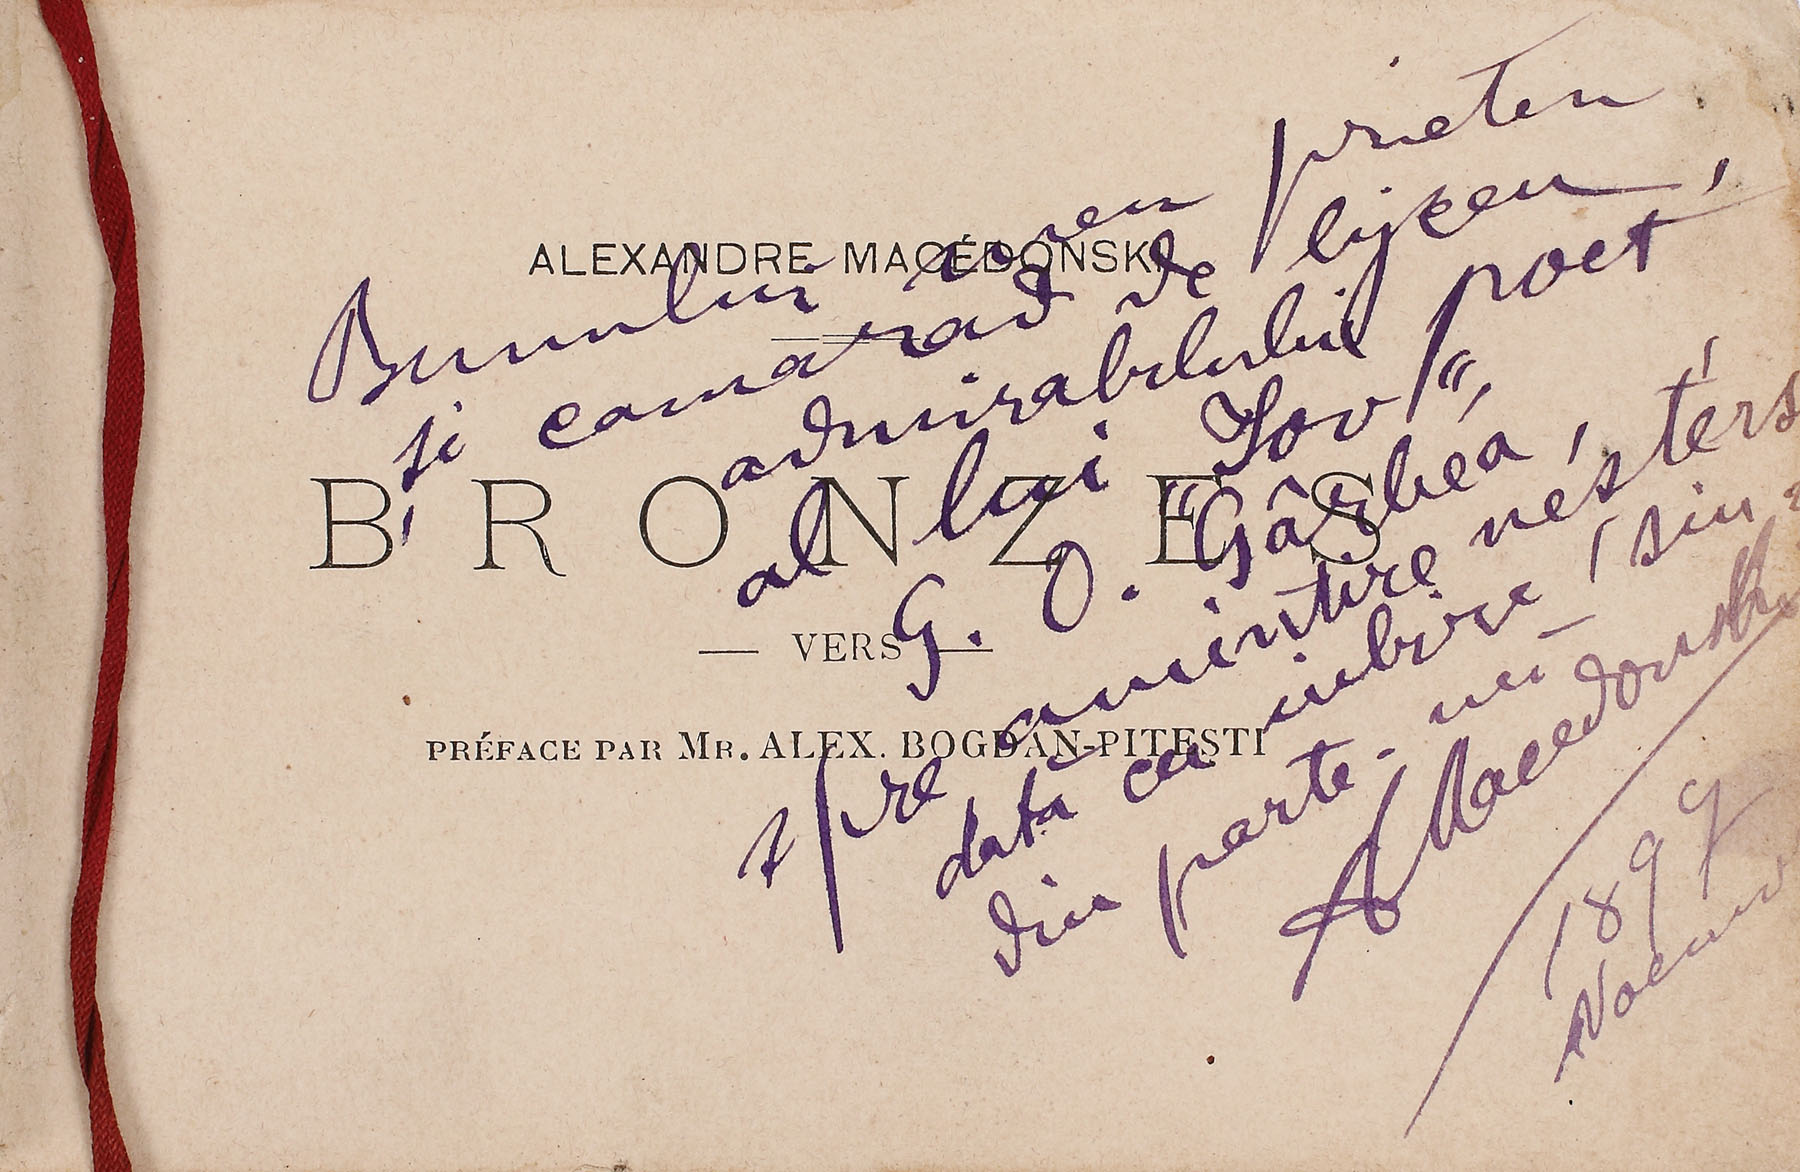 ALEXANDRE MACÉDONSKI
BRONZES
— VERS —
PRÉFACE PAR Mr. ALEX. BOGDAN-PITESTI
Bunului meu prieten
și camarad de lyceu,
admirabilului poet
al lui „Iov“,
G. O. Gârbea,
spre amintire nestérsă
dată cu iubire, sin-
din parte-mi —
AMacedonski
1899
Noemv